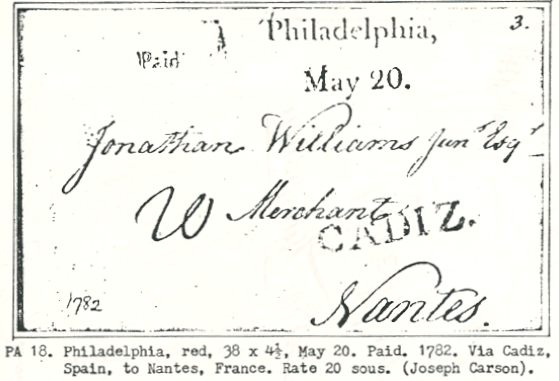 Philadelphia, 3.
Paid
May 20.
Jonathan Williams Junr Esqr
Merchant
CADIZ.
Nantes.
1782
PA 18. Philadelphia, red, 38 x 4½, May 20. Paid. 1782. Via Cadiz,
Spain, to Nantes, France. Rate 20 sous. (Joseph Carson).